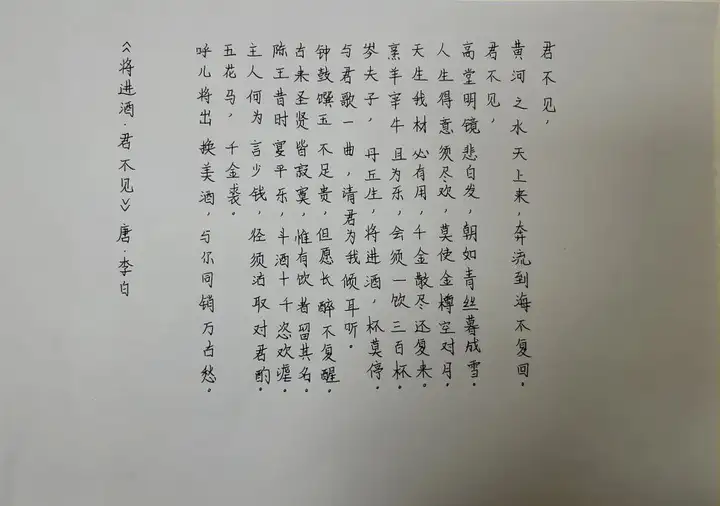 君不见，
黄河之水天上来，奔流到海不复回。
君不见，
高堂明镜悲白发，朝如青丝暮成雪。
人生得意须尽欢，莫使金樽空对月，
天生我材必有用，千金散尽还复来。
烹羊宰牛且为乐，会须一饮三百杯。
岑夫子，丹丘生，将进酒，杯莫停。
与君歌一曲，请君为我倾耳听。
钟鼓馔玉不足贵，但愿长醉不复醒。
古来圣贤皆寂寞，惟有饮者留其名。
陈王昔时宴平乐，斗酒十千恣欢谑。
主人何为言少钱，径须沽取对君酌。
五花马，千金裘。
呼儿将出换美酒，与尔同销万古愁。
《将进酒·君不见》唐·李白